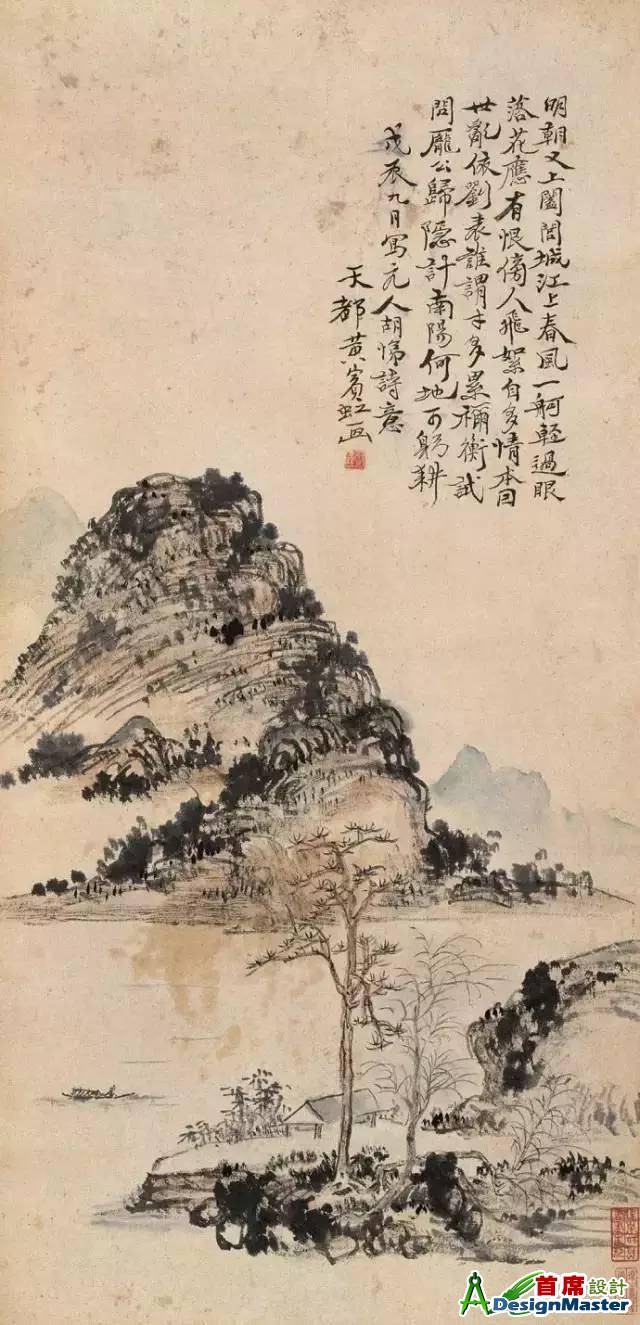 明朝又上闔閭城江上春風一舸輕過眼
落花應有恨傍人飛絮自多情本因
世亂依劉表誰謂才多累禰衡試
問龐公歸隱計南陽何地可躬耕
戊辰九月寫元人胡悌詩意
天都黃賓虹畫
首席設計
ADesignMaster